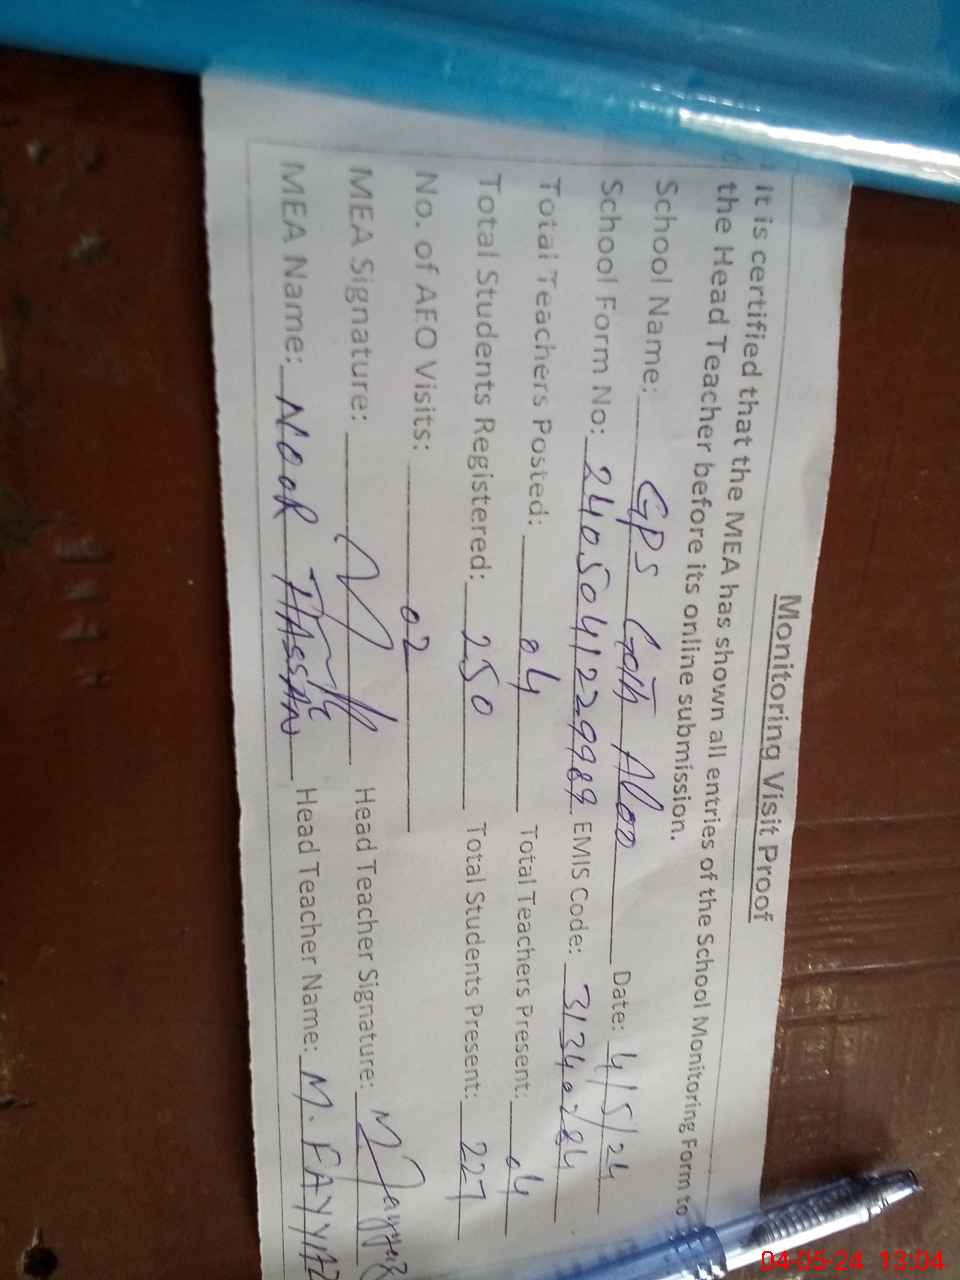 Monitoring Visit Proof
It is certified that the MEA has shown all entries of the School Monitoring Form to
the Head Teacher before its online submission.
School Name: GPS Goth Aloo Date: 4/5/24
School Form No: 2405041229989 EMIS Code: 31340784
Total Teachers Posted: 04 Total Teachers Present: 04
Total Students Registered: 250 Total Students Present: 227
No. of AEO Visits: 02
MEA Signature: Head Teacher Signature: M Fayyaz
MEA Name: NOOR HASSAN Head Teacher Name: M. FAYYAZ
04-05-24 13:04